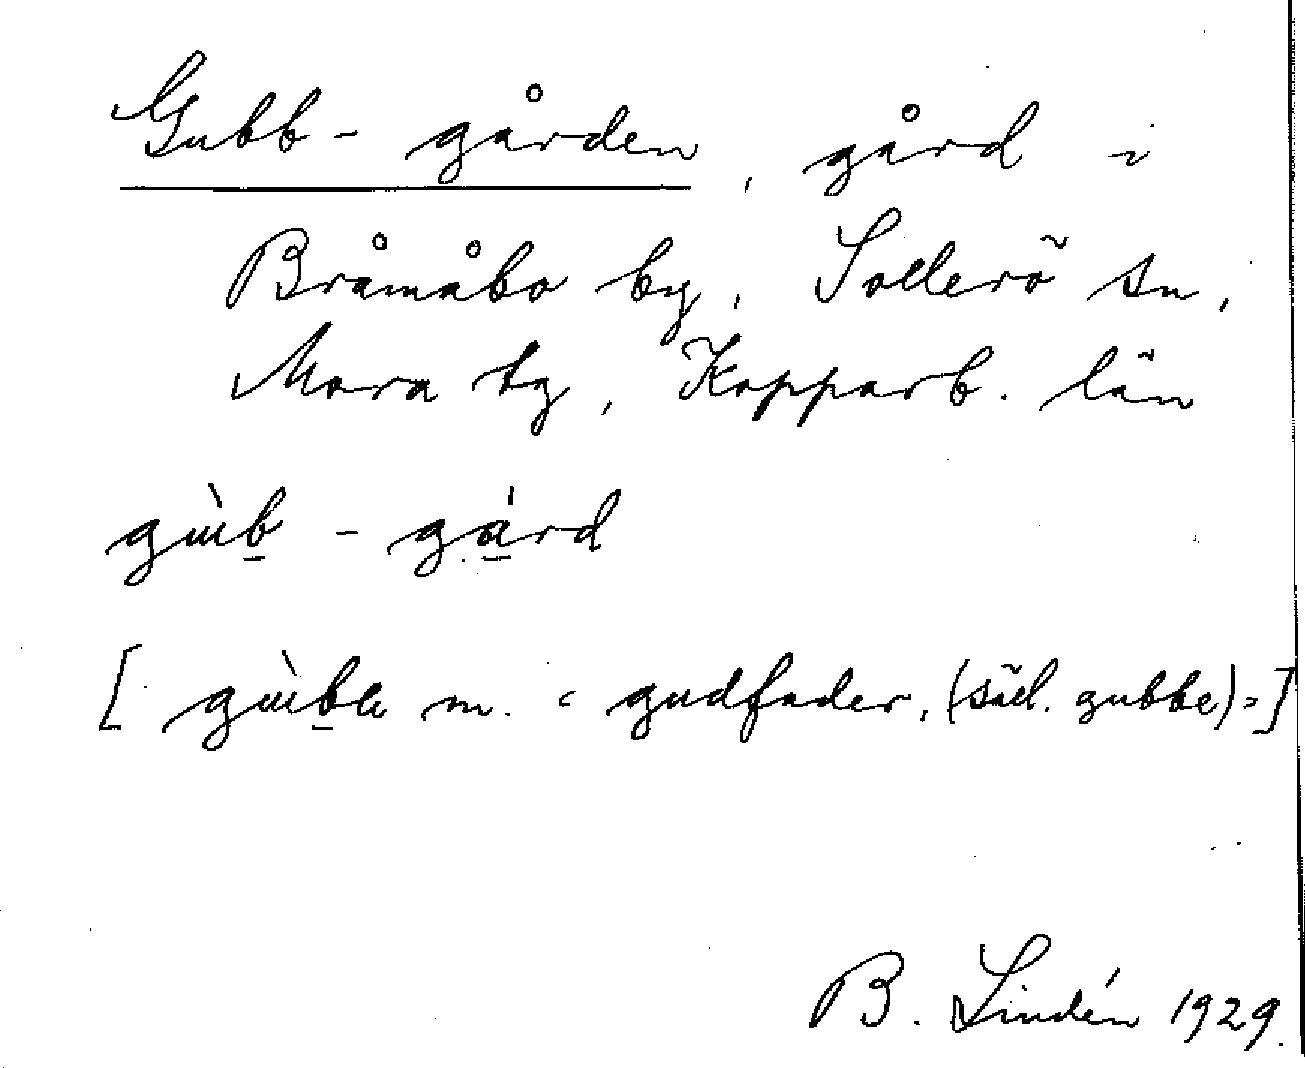 Gubb-gården, gård i
Bråmåbo by, Sollerö sn,
Mora tg, Kopparb. län
gùb̲ - gá̲rd
[ gùb̲a m. = gudfader, (säll. gubbe) = ]
B. Lindén 1929.